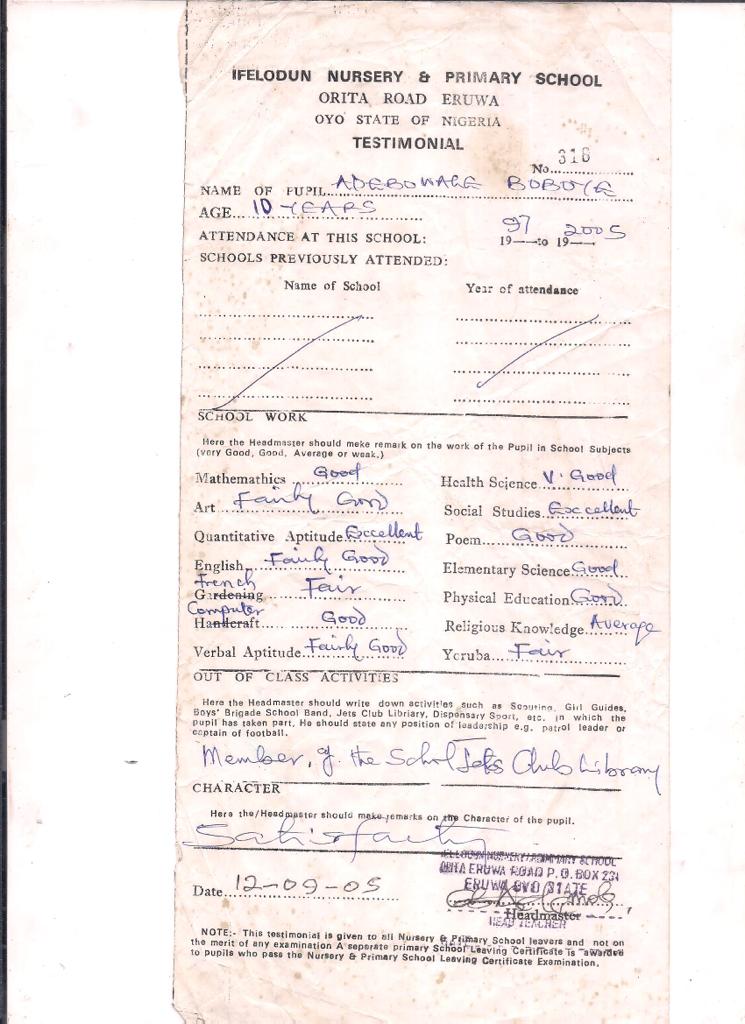 IFELODUN NURSERY & PRIMARY SCHOOL
ORITA ROAD ERUWA
OYO STATE OF NIGERIA
TESTIMONIAL
No. 318
NAME OF PUPIL ADEBOWALE BOBOYE
AGE 10 YEARS
ATTENDANCE AT THIS SCHOOL: 1997 to 19 2005
SCHOOLS PREVIOUSLY ATTENDED:
Name of School Year of attendance
SCHOOL WORK
Here the Headmaster should meke remark on the work of the Pupil in School Subjects
(very Good, Good, Average or weak.)
Mathemathics Good Health Science V. Good
Art Fairly Good Social Studies Excellent
Quantitative Aptitude Excellent Poem Good
English Fairly Good Elementary Science Good
French
Gardening Fair Physical Education Good
Computer
Handcraft Good Religious Knowledge Average
Verbal Aptitude Fairly Good Yoruba Fair
OUT OF CLASS ACTIVITIES
Here the Headmaster should write down activities such as Scouting, Girl Guides,
Boys' Brigade School Band, Jets Club Libriary, Dispensary Sport, etc. in which the
pupil has taken part. He should state any position of leadership e.g. patrol leader or
captain of football.
Member of the School Jets Club Library
CHARACTER
Here the/Headmaster should make remarks on the Character of the pupil.
Satisfactory
PRIMARY SCHOOL
ORITA ERUWA ROAD P.O. BOX 231
ERUWA OYO STATE
Date 12-09-05
Headmaster
HEAD TEACHER
NOTE:- This testimonial is given to all Nursery & Primary School leavers and not on
the merit of any examination A seperate primary School Leaving Certificate is awarded
to pupils who pass the Nursery & Primary School Leaving Certificate Examination.